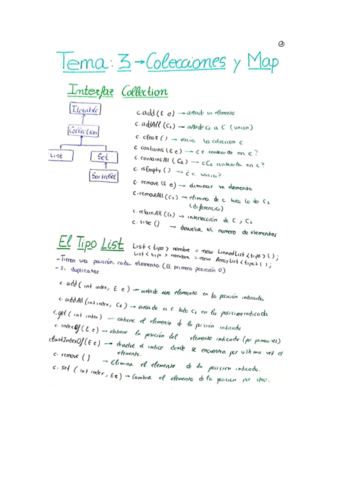 Tema: 3 → Colecciones y Map
Interfaz Collection
Iterable
Collection
List
Set
SortedSet
c.add(E e) → añade un elemento
c.addAll(C2) → añade C2 a C (union)
c.clear() → vacia la coleccion c
c.contains(E e) → ¿e contenido en c?
c.containsAll(C2) → ¿C2 contenido en c?
c.isEmpty() → ¿c vacio?
c.remove(E e) → eliminar un elemento
c.removeAll(C2) → elimina de c todo lo de C2
(diferencia)
c.retainAll(C2) → interseccion de C, C2
c.size() → devuelve el numero de elementos
El Tipo List
List<tipo> nombre = new LinkedList<tipo>();
List<tipo> nombre = new ArrayList<tipo>();
- Tienen una posicion cada elemento (la primera posicion 0)
- Si duplicados
c.add(int index, E e) → añade ese elemento en la posicion indicada
c.addAll(int index, C2) → añade a c todo C2 en la posicion indicada
c.get(int index) → obtiene el elemento de la posicion indicada
c.indexOf(E e) → obtiene la posicion del elemento indicado (por primera vez)
c.lastIndexOf(E e) → devuelve el indice donde se encuentra por ultima vez el
elemento.
c.remove() → Elimina el elemento de la posicion indicada.
c.set(int index, E e) → Cambia el elemento de la posicion por otro.